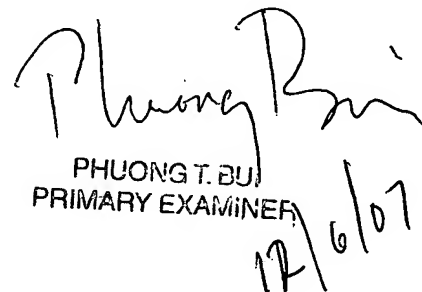 Phuong Bui
PHUONG T. BUI
PRIMARY EXAMINER
12/6/07